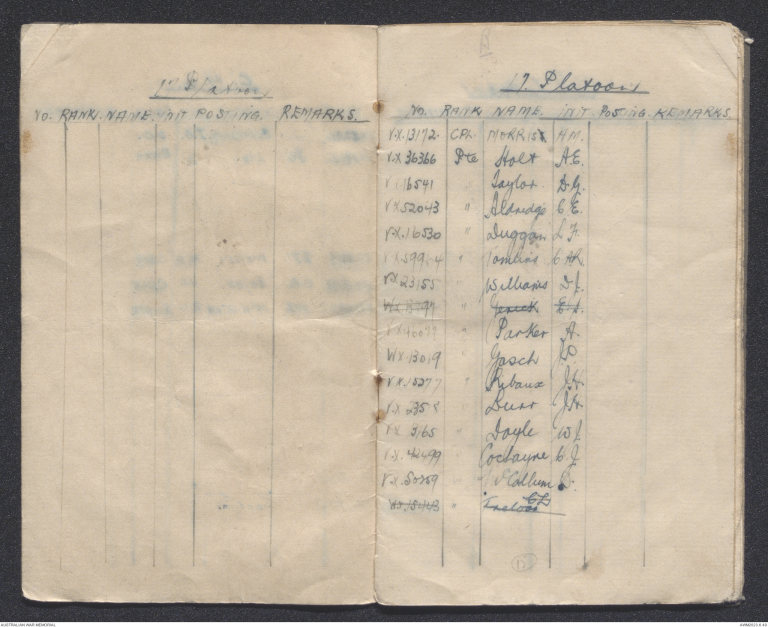 17 Platoon
No. RANK. NAME. INIT POSTING. REMARKS.
17. Platoon
No. RANK NAME. INIT POSTING. REMARKS.
V.X.13172. CPL. MORRIS A.M.
V.X 36366 Pte Holt A.E.
VX16541 " Taylor D.G.
V X52043 " Aldridge C E.
V.X.16530 " Duggan L F.
" Tomlins C
VX 23155 Williams D.J.
"
" Parker A.
WX.13019 " Gasch
V.X.15277 " Ribaux J.H.
V.X. 2358 " Burr J.H.
V.X 3165 Doyle W J.
V.X. 42499 Coctayne C J.
V.X.50259 McCallum D.
WX.15443 "
AUSTRALIAN WAR MEMORIAL